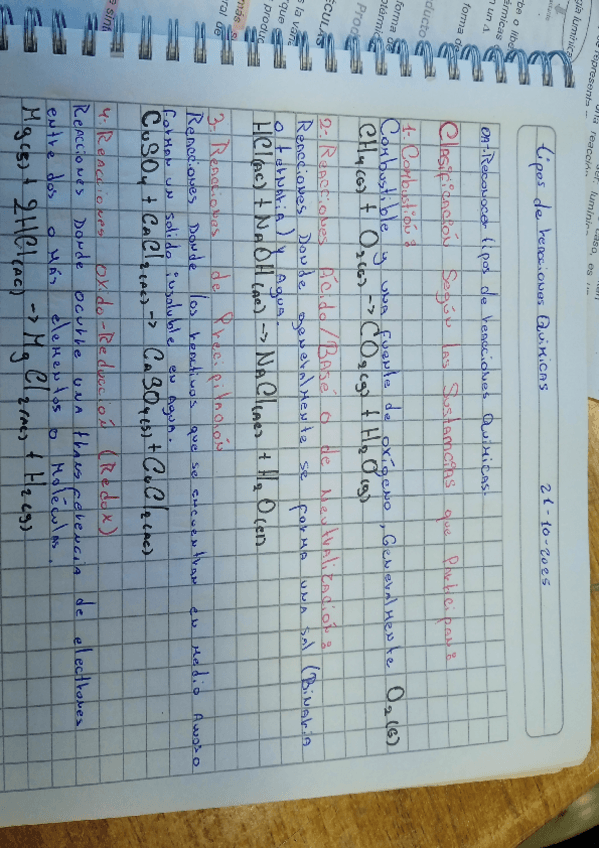 Tipos de reacciones Químicas 21-10-2025
OA: Reconocer tipos de reacciones Químicas.
Clasificación Según las Sustancias que Participan:
1.- Combustión:
Combustible y una fuente de oxígeno, Generalmente O2(G)
CH4(G) + O2(G) → CO2(g) + H2O(g)
2.- Reacciones Ácido/BASE o de Neutralización:
Reacciones Donde generalmente se forma una sal (Binaria
o ternaria) y Agua.
HCl(AC) + NaOH(AC) → NaCl(AC) + H2O(el)
3.- Reacciones de Precipitación
Reacciones Donde los reactivos que se encuentran en medio Acuoso
forman un solido insoluble en agua.
CuSO4 + CaCl2(AC) → CaSO4(S) + CuCl2(AC)
4.- Reacciones oxido-Reducción (Redox)
Reacciones Donde ocurre una transferencia de electrones
entre dos o más elementos o moléculas.
Mg(S) + 2HCl(AC) → MgCl2(AC) + H2(g)